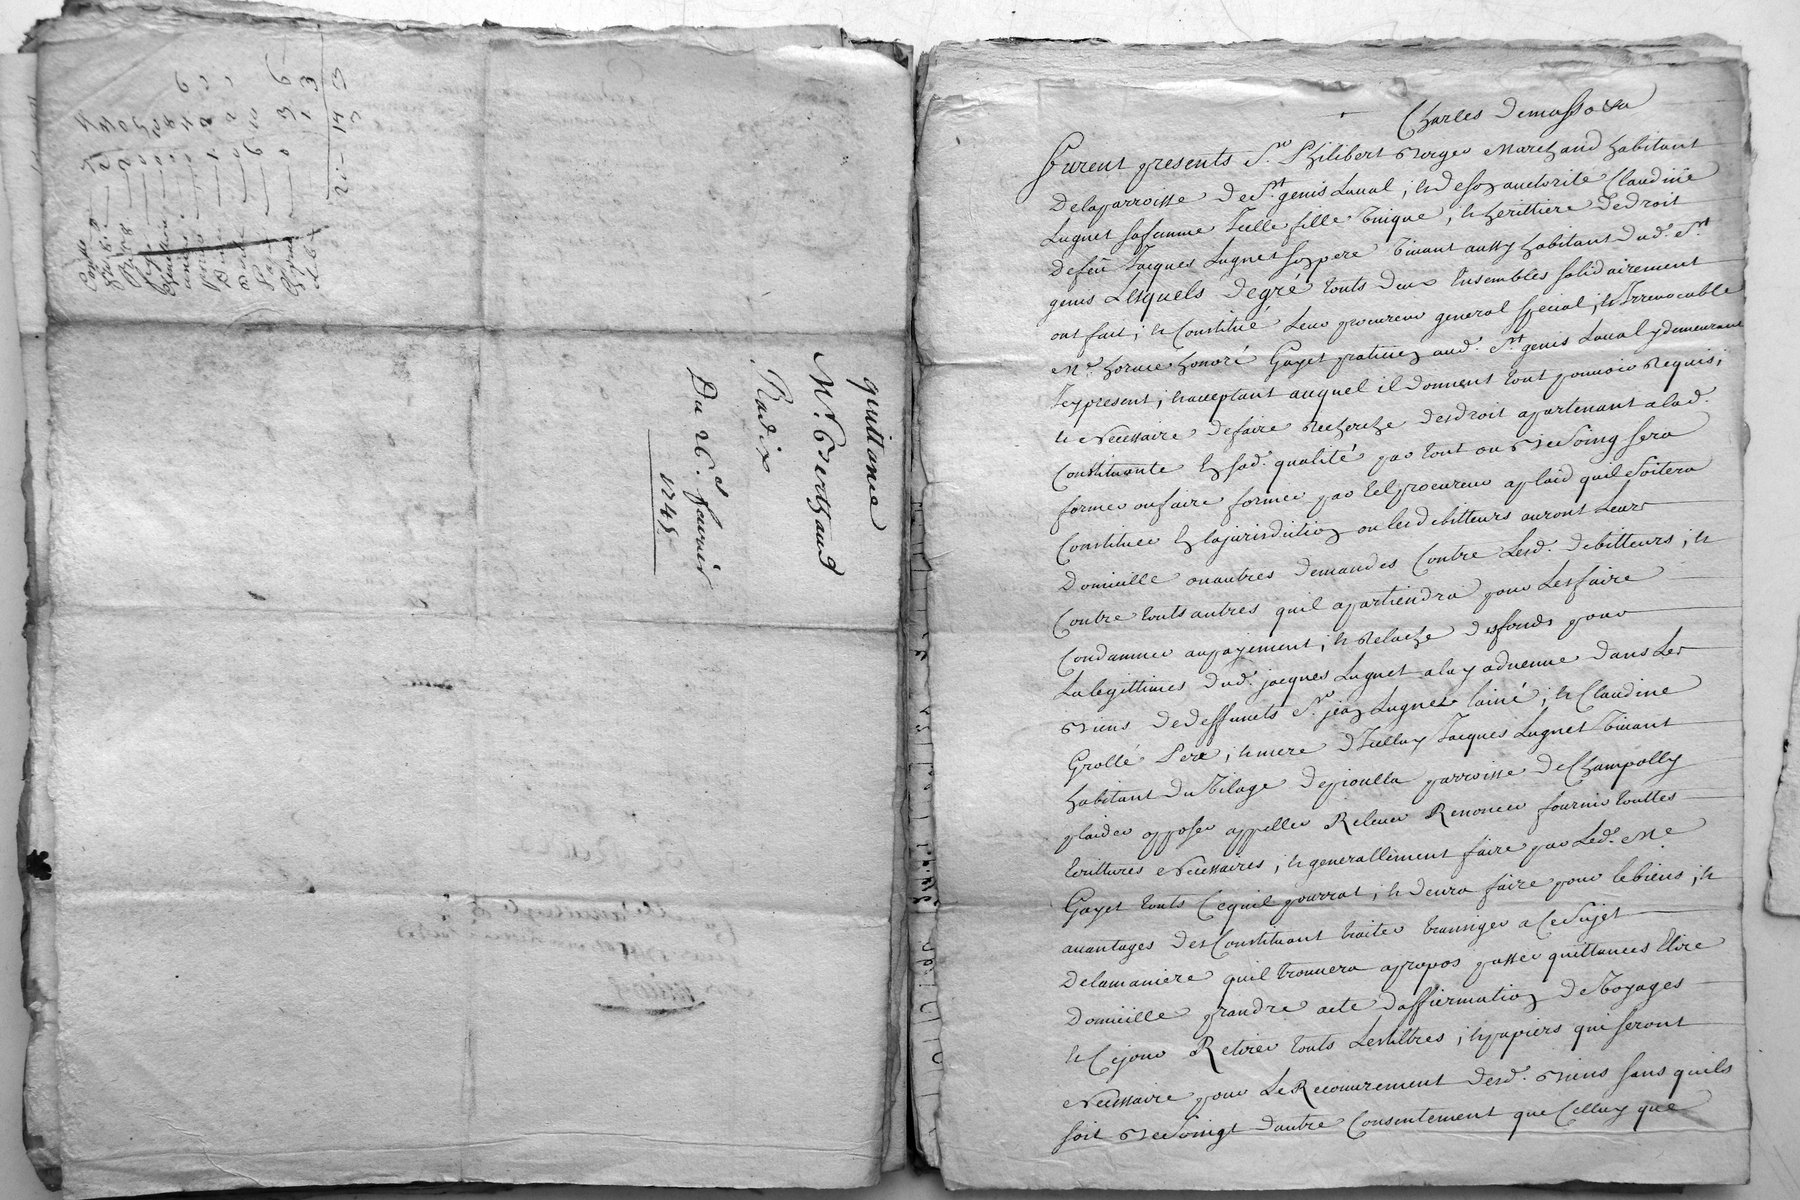 quittance
Mr. Berthaud
Radix
Du 26e. feuvrier
1745
21 - 14 3
Charles Demasso &a
furent presents Sr. Philibert Berger Marchand habitant
Delaparroisse De St. genis Laual ; et de sonauctorité Claudine
Lugnet safemme Icelle fille Vnique ; et herittiere De droit
Defeü Jacques Lugnet son pere Viuant aussy habitant Dud. St.
genis Lesquels De gré touts Deux Ensembles solidairement
ont fait ; et Constitué Leur procureur general special ; et Irreuocable
Me. horace honoré Gayet praticien aud. St. genis Laual y demeurant
Icy present ; et acceptant auquel il Donnent tout pouuoir Requis ;
et Necessaire De faire Recherche Des droit apartenant alad.
Constituante En sad. qualité par tout ou Besoing sera
former oufaire former par tel procureur aplaid quil Soitera
Constituer En lajurisdiction ou les debitteurs auront Leurs
Domicille ou autres demandes Contre Lesd. debitteurs ; et
Contre touts autres quil apartiendra pour Les faire
Condamner aupayement ; et Relache des fonds pour
La legittimes Dud. jacques Lugnet a luy aduenue Dans Les
Biens De deffuncts Sr. jean Lugnet lainé ; et Claudine
Grollé Pere ; et mere D'Icelluy Jacques Lugnet Viuant
habitant Du Vilage De parroisse De Champolly
plaider opposer appeller Releuer Renoncer fournir touttes
Escrittures Necessaires ; et generallement faire par Led. Me.
Gayet touts Cequil pourrat ; et deura faire pour le biens ; et
auantages des Constituant traiter transiger a Ce Sujet
De lamaniere quil trouuera apropos passer quittances Elire
Domicille prandre acte D'affirmation De Voyages
et Sejour Retirer touts Lestiltres ; et papiers qui seront
Necessaire pour Le Recouurement Desd. Biens sans quils
soit Besoingt D'autre Consentement que Celluy que